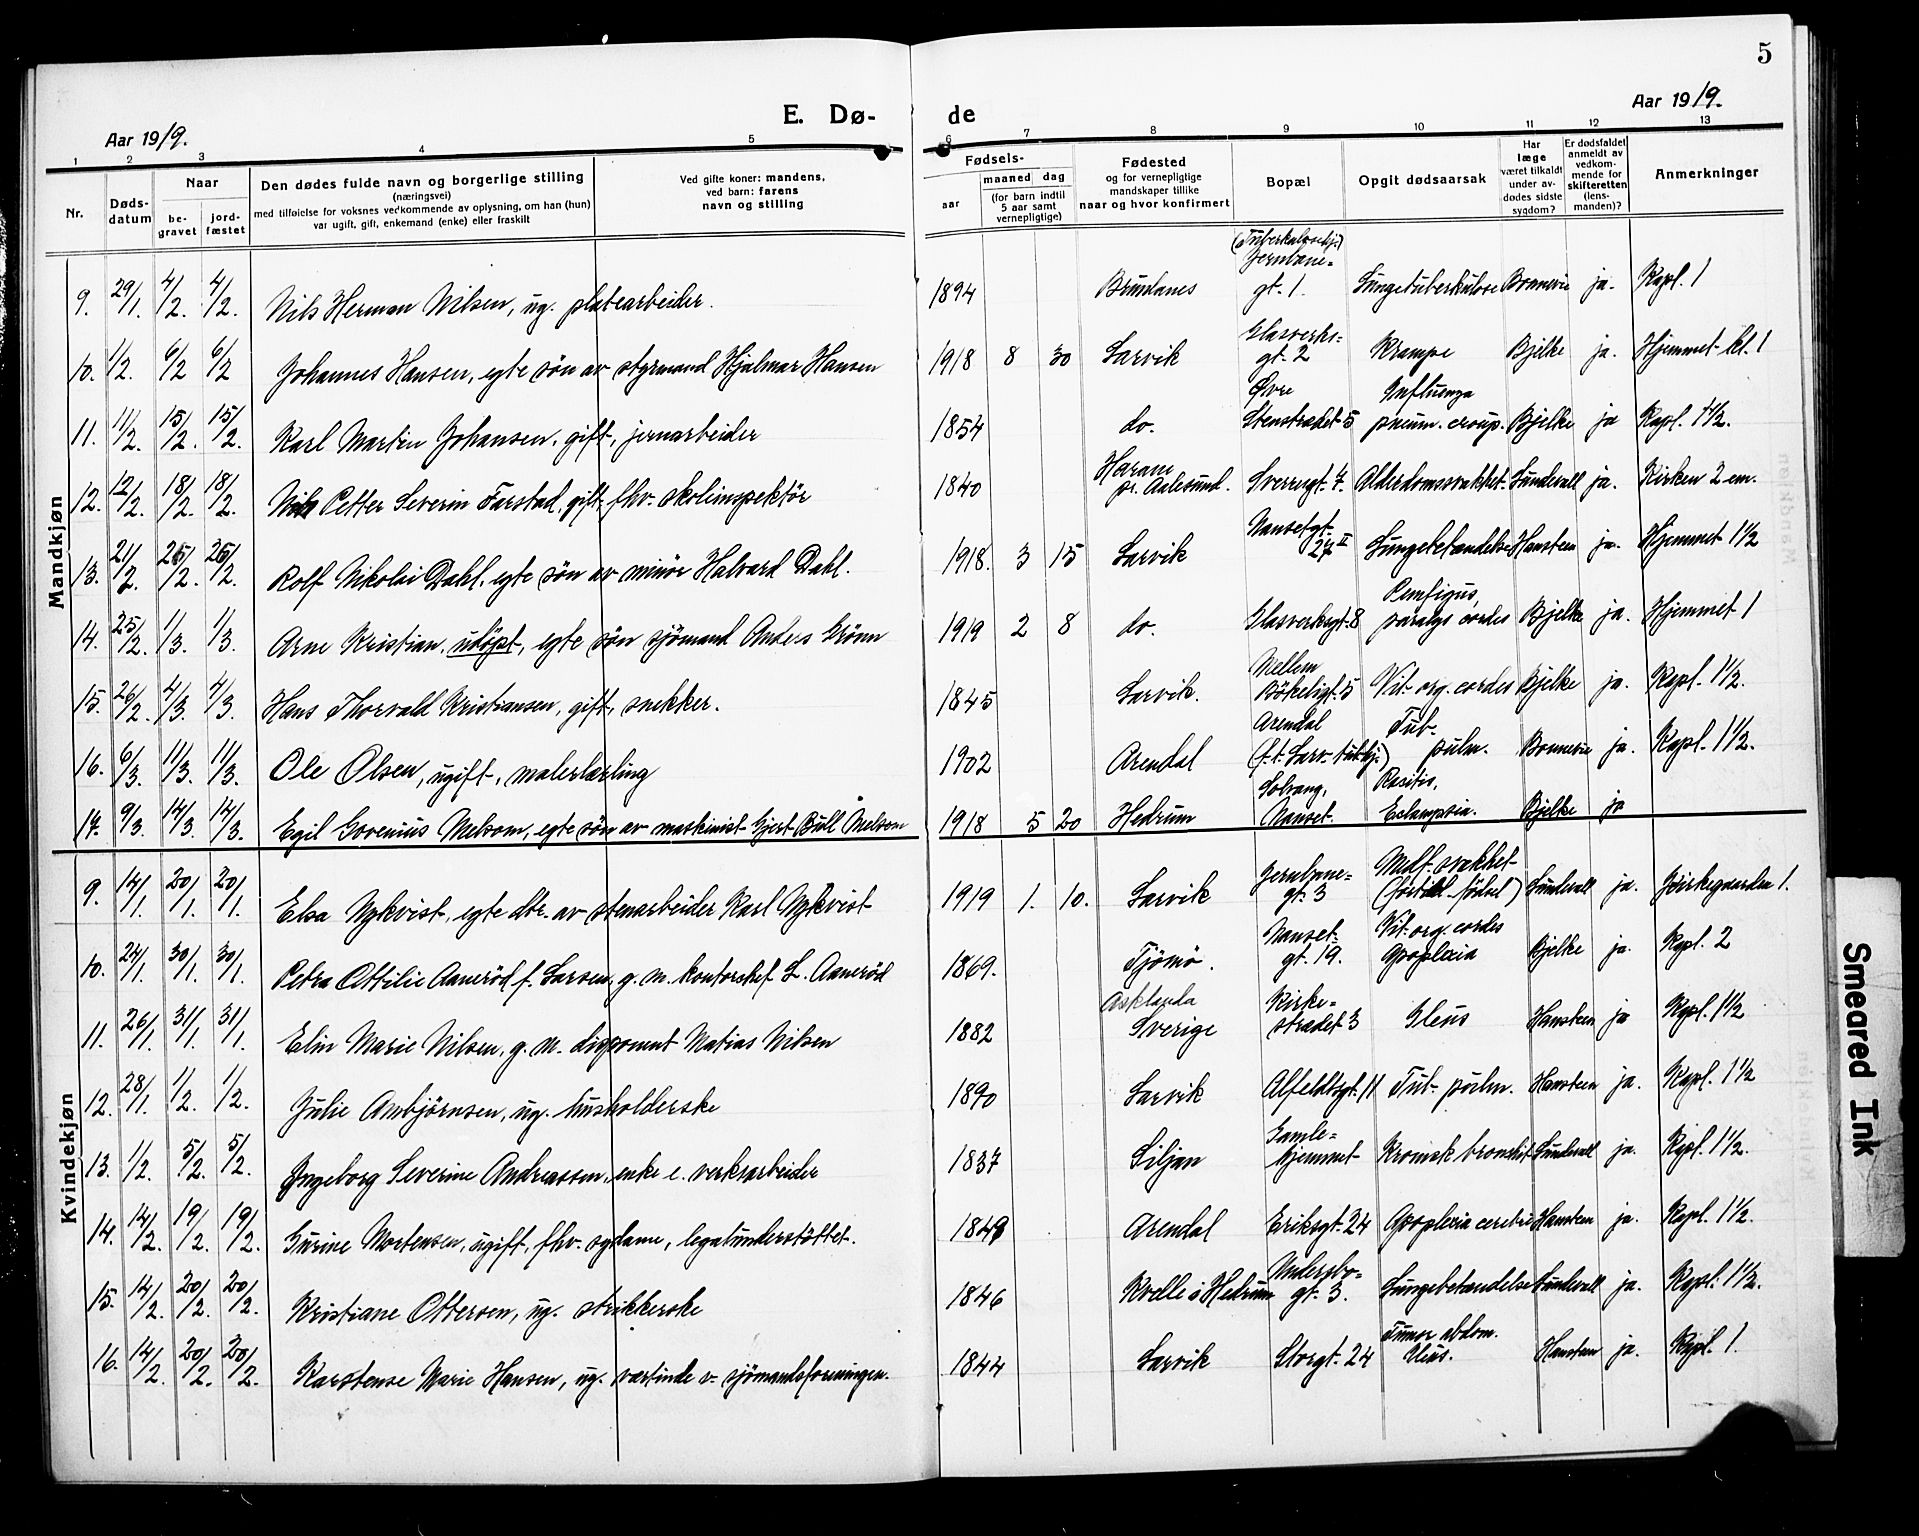 5
Aar 1919.
E. Dø-
de
Aar 1919.
1 2 3 4 5 6 7 8 9 10 11 12 13
Nr.
Døds-
datum
Naar
be-
gravet
jord-
fæstet
Den dødes fulde navn og borgerlige stilling
(næringsvei)
med tilføielse for voksnes vedkommende av oplysning, om han (hun)
var ugift, gift, enkemand (enke) eller fraskilt
Ved gifte koner: mandens,
ved barn: farens
navn og stilling
Fødsels-
aar
maaned dag
(for barn indtil
5 aar samt
vernepligtige)
Fødested
og for vernepligtige
mandskaper tillike
naar og hvor konfirmert
Bopæl
Opgit dødsaarsak
Har
læge
været tilkaldt
under av-
dødes sidste
sygdom?
Er dødsfaldet
anmeldt av
vedkom-
mende for
skifteretten
(lens-
manden)?
Anmerkninger
Mandkjøn
(Tuberkulosehj.)
Jernbane-
9. 29/1. 4/2. 4/2. Nils Herman Nilsen, ug. platearbeider. 1894 Brunlanes gt. 1. Lungetuberkulose Bonnevie ja. Kapl. 1
Glasverks-
10. 1/2. 6/2 6/2 Johannes Hansen, egte søn av styrmand Hjalmar Hansen 1918 8 30 Larvik gt. 2 Krampe Bjelke ja. Hjemmet kl. 1
Øvre Influenza
11. 11/2. 15/2. 15/2. Karl Martin Johansen, gift, jernarbeider 1854 do. Stenstrædet 5 pneum. croup. Bjelke ja Kapl. 1 1/2.
Haram
12. 12/2. 18/2. 18/2. Nils Petter Severin Farstad, gift, fhv. skoleinspektør 1840 pr. Aalesund. Sverresgt. 7. Alderdomssvakhet. Sundevall ja. Kirken 2 em.
Nansetgt.
13. 21/2. 25/2. 25/2. Rolf Nikolai Dahl, egte søn av minør Halvard Dahl. 1918. 3 15 Larvik 27 II Lungebetændelse Hansteen ja. Hjemmet 1 1/2
Pemfigus,
14. 25/2. 1/3. 1/3. Arne Kristian, udøpt, egte søn sjømand Anders Grönn 1919 2 8 do. Glasverksgt. 8 paralys cordes Bjelke ja. Hjemmet 1
Mellem
15. 26/2. 4/3. 4/3. Hans Thorvald Kristiansen, gift, snekker. 1845 Larvik. Bökeligt. 5 Vit. org. cordes Bjelke ja. Kapl. 1 1/2.
Arendal Tub.
16. 6/3. 11/3. 11/3. Ole Olsen, ugift, malerlærling 1902 Arendal (f.t. Larv. tub.hj.) pulm. Bonnevie ja. Kapl. 1 1/2.
Solvang, Rasitis,
17. 9/3. 14/3. 14/3. Egil Govenius Melsom, egte søn av maskinist Gjert Bull Melsom 1918 5 20 Hedrum Nanset. Eclampsia. Bjelke ja
Kvindekjøn
Jernbane- Medf. svakhet
9. 14/1. 20/1. 20/1. Elsa Nykvist, egte dtr. av stenarbeider Karl Nykvist 1919 1. 10. Larvik gt. 3 fødsel) Sundevall ja. Kirkegaarden 1.
Nanset- Vit. org. cordes
10. 24/1. 30/1. 30/1. Petra Ottilie Aaneröd f. Larsen, g. m. kontorchef L. Aanerød 1869. Tjömö. gt. 19. Apoplexia Bjelke ja. Kapl. 2
Asklanda Kirke-
11. 26/1. 31/1. 31/1. Elin Marie Nilsen, g. m. disponent Matias Nilsen 1882 Sverige strædet 3 Ileus Hansteen ja Kapl. 1 1/2
12. 28/1. 1/2. 1/2. Julie Ambjörnsen, ug. husholderske 1890 Larvik Alfeldtsgt. 11 Tub. pulm. Hansteen ja. Kapl. 1 1/2
Gamle-
13. 1/2. 5/2. 5/2. Ingeborg Severine Andreassen, enke e. verksarbeider 1837 Siljan hjemmet Kronisk bronchit Sundevall ja. Kapl. 1 1/2.
14. 14/2. 19/2. 19/2. Gurine Mortensen, ugift, fhv. sydame, legatunderstöttet. 1849 Arendal Eriksgt. 24 Apoplexia cerebri Hansteen ja. Kapl. 1 1/2.
Undersbo-
15. 14/2. 20/2. 20/2. Kristiane Ottersen, ug. strikkerske 1846 Kvelle i Hedrum gt. 3. Lungebetændelse Sundevall ja. Kapl. 1 1/2.
Tumor abdom.
16. 14/2. 20/2. 20/2. Karstense Marie Hansen, ug. værtinde v. sjømandsforeningen. 1844 Larvik Storgt. 24 Ileus. Hansteen ja. Kapl. 1.
Smeared Ink